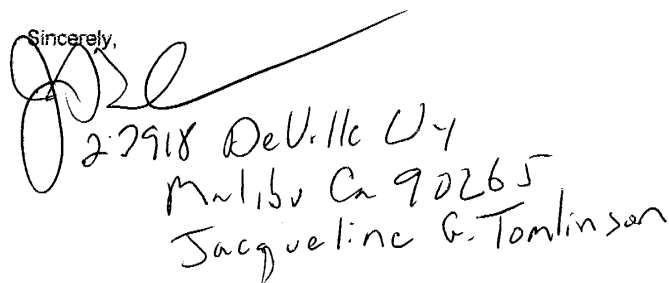 Sincerely,
23918 DeVille Wy
Malibu Ca 90265
Jacqueline G. Tomlinson